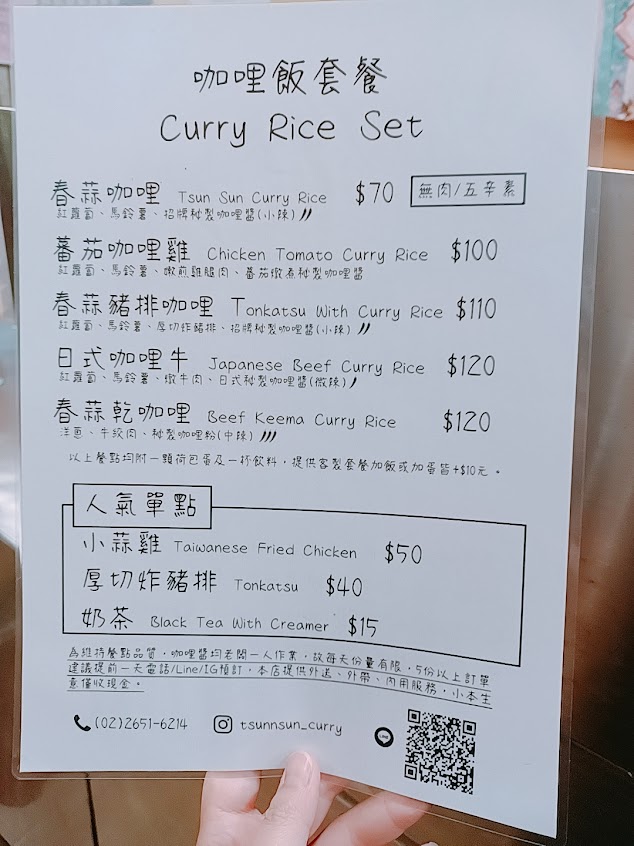 咖哩飯套餐
Curry Rice Set
春蒜咖哩 Tsun Sun Curry Rice $70 無肉/五辛素
紅蘿蔔、馬鈴薯、招牌秘製咖哩醬(小辣)
蕃茄咖哩雞 Chicken Tomato Curry Rice $100
紅蘿蔔、馬鈴薯、嫩煎雞腿肉、蕃茄燉煮秘製咖哩醬
春蒜豬排咖哩 Tonkatsu With Curry Rice $110
紅蘿蔔、馬鈴薯、厚切炸豬排、招牌秘製咖哩醬(小辣)
日式咖哩牛 Japanese Beef Curry Rice $120
紅蘿蔔、馬鈴薯、燉牛肉、日式秘製咖哩醬(微辣)
春蒜乾咖哩 Beef Keema Curry Rice $120
洋蔥、牛絞肉、秘製咖哩粉(中辣)
以上餐點均附一顆荷包蛋及一杯飲料，提供客製套餐加飯或加蛋皆+$10元。
人氣單點
小蒜雞 Taiwanese Fried Chicken $50
厚切炸豬排 Tonkatsu $40
奶茶 Black Tea With Creamer $15
為維持餐點品質，咖哩醬均老闆一人作業，故每天份量有限，5份以上訂單
建議提前一天電話/Line/IG預訂，本店提供外送、外帶、內用服務，小本生
意僅收現金。
(02)2651-6214 tsunnsun_curry LINE